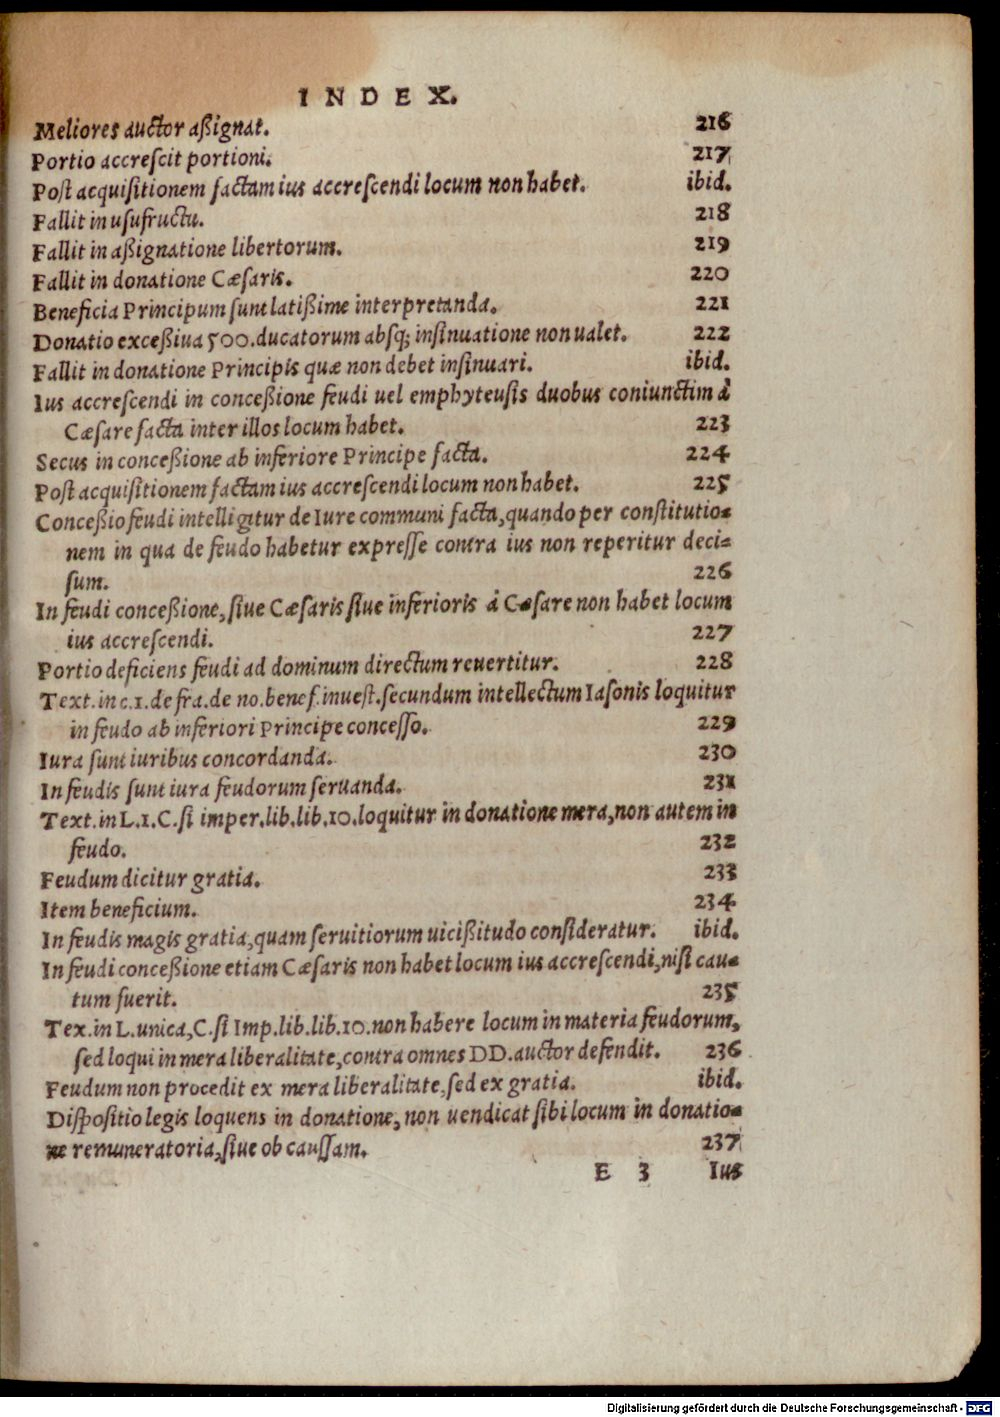 INDEX.
Meliores auctor aßignat. 216
Portio accreſcit portioni. 217
Poſt acquiſitionem factam ius accreſcendi locum non habet. ibid.
Fallit in uſufructu. 218
Fallit in aßignatione libertorum. 219
Fallit in donatione Cæſaris. 220
Beneficia Principum ſunt latißime interpretanda. 221
Donatio exceßiua 500.ducatorum abſq; inſinuatione non ualet. 222
Fallit in donatione Principis quæ non debet inſinuari. ibid.
Ius accreſcendi in conceßione feudi uel emphyteuſis duobus coniunctim à
Cæſare facta inter illos locum habet. 223
Secus in conceßione ab inferiore Principe facta. 224
Poſt acquiſitionem factam ius accreſcendi locum non habet. 225
Conceßio feudi intelligitur de Iure communi facta,quando per conſtitutio-
nem in qua de feudo habetur expreſſe contra ius non reperitur deci-
ſum. 226
In feudi conceßione,ſiue Cæſaris ſiue inferioris à Cæſare non habet locum
ius accreſcendi. 227
Portio deficiens feudi ad dominum directum reuertitur. 228
Text.in c.1.de fra.de no.benef.inueſt.ſecundum intellectum Iaſonis loquitur
in feudo ab inferiori Principe conceſſo. 229
Iura ſunt iuribus concordanda. 230
In feudis ſunt iura feudorum ſeruanda. 231
Text.in L.1.C.ſi imper.lib.lib.10.loquitur in donatione mera,non autem in
feudo. 232
Feudum dicitur gratia. 233
Item beneficium. 234
In feudis magis gratia,quam ſeruitiorum uicißitudo conſideratur. ibid.
In feudi conceßione etiam Cæſaris non habet locum ius accreſcendi,niſi cau-
tum fuerit. 235
Tex.in L.unica,C.ſi Imp.lib.lib.10.non habere locum in materia feudorum,
ſed loqui in mera liberalitate,contra omnes DD.auctor defendit. 236
Feudum non procedit ex mera liberalitate,ſed ex gratia. ibid.
Diſpoſitio legis loquens in donatione, non uendicat ſibi locum in donatio-
ne remuneratoria,ſiue ob cauſſam. 237
E 3 Ius
Digitalisierung gefördert durch die Deutsche Forschungsgemeinschaft - DFG